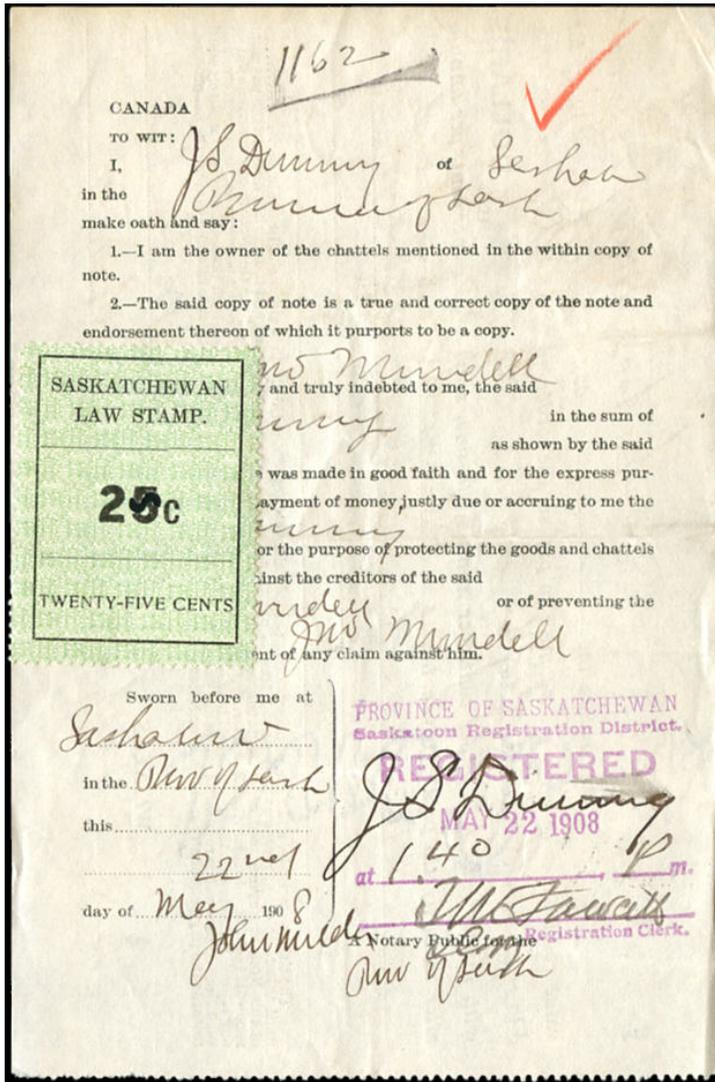 1162
CANADA
TO WIT:
I, J S Dunning of
in the Province of Sask
make oath and say:
1.—I am the owner of the chattels mentioned in the within copy of
note.
2.—The said copy of note is a true and correct copy of the note and
endorsement thereon of which it purports to be a copy.
Mundell
and truly indebted to me, the said
in the sum of
as shown by the said
was made in good faith and for the express pur-
ayment of money justly due or accruing to me the
or the purpose of protecting the goods and chattels
inst the creditors of the said
or of preventing the
Jno Mundell
ent of any claim against him.
SASKATCHEWAN
LAW STAMP.
25c
TWENTY-FIVE CENTS
Sworn before me at
in the Prov of Sask
this
22nd
day of May 1908
PROVINCE OF SASKATCHEWAN
Saskatoon Registration District.
REGISTERED
MAY 22 1908
at 1.40 P m.
Registration Clerk.
A Notary Public for the
Prov of Sask